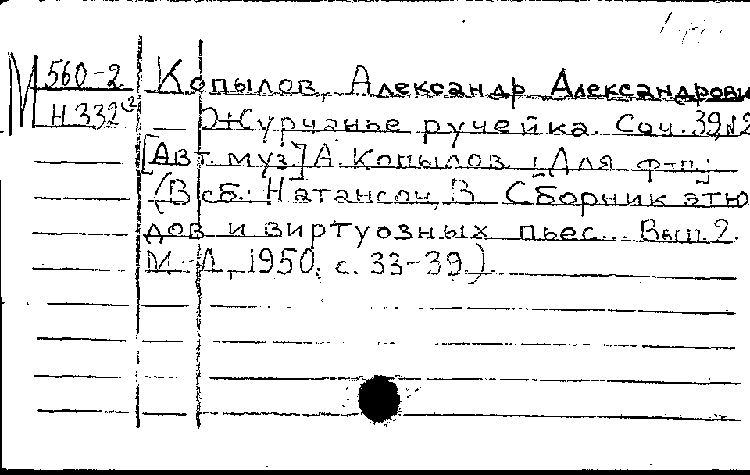 М 560-2 Копылов, Александр Александрови
Н 332(2) Журчанье ручейка. Соч. 39,№2
[Авт. муз.] А. Копылов ; [Для ф-п.;]
(В сб.: Натансон, В. Сборник этю
дов и виртуозных пьес... Вып. 2.
М.-Л., 1950, с. 33-39).